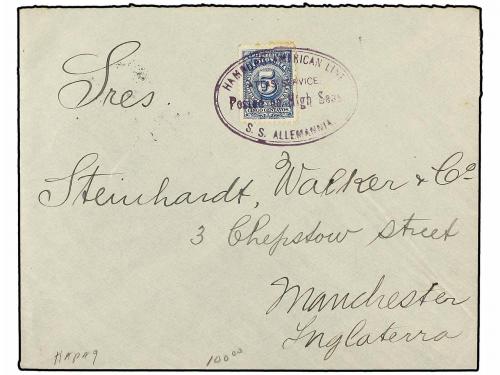 HAMBURG AMERICAN LINE
SERVICE
Posted on High Seas
S. S. ALLEMANNIA
5
Sres
Steinhardt, Walker & Co
3 Chepstow street
Manchester
Inglaterra
HAPAG
10000